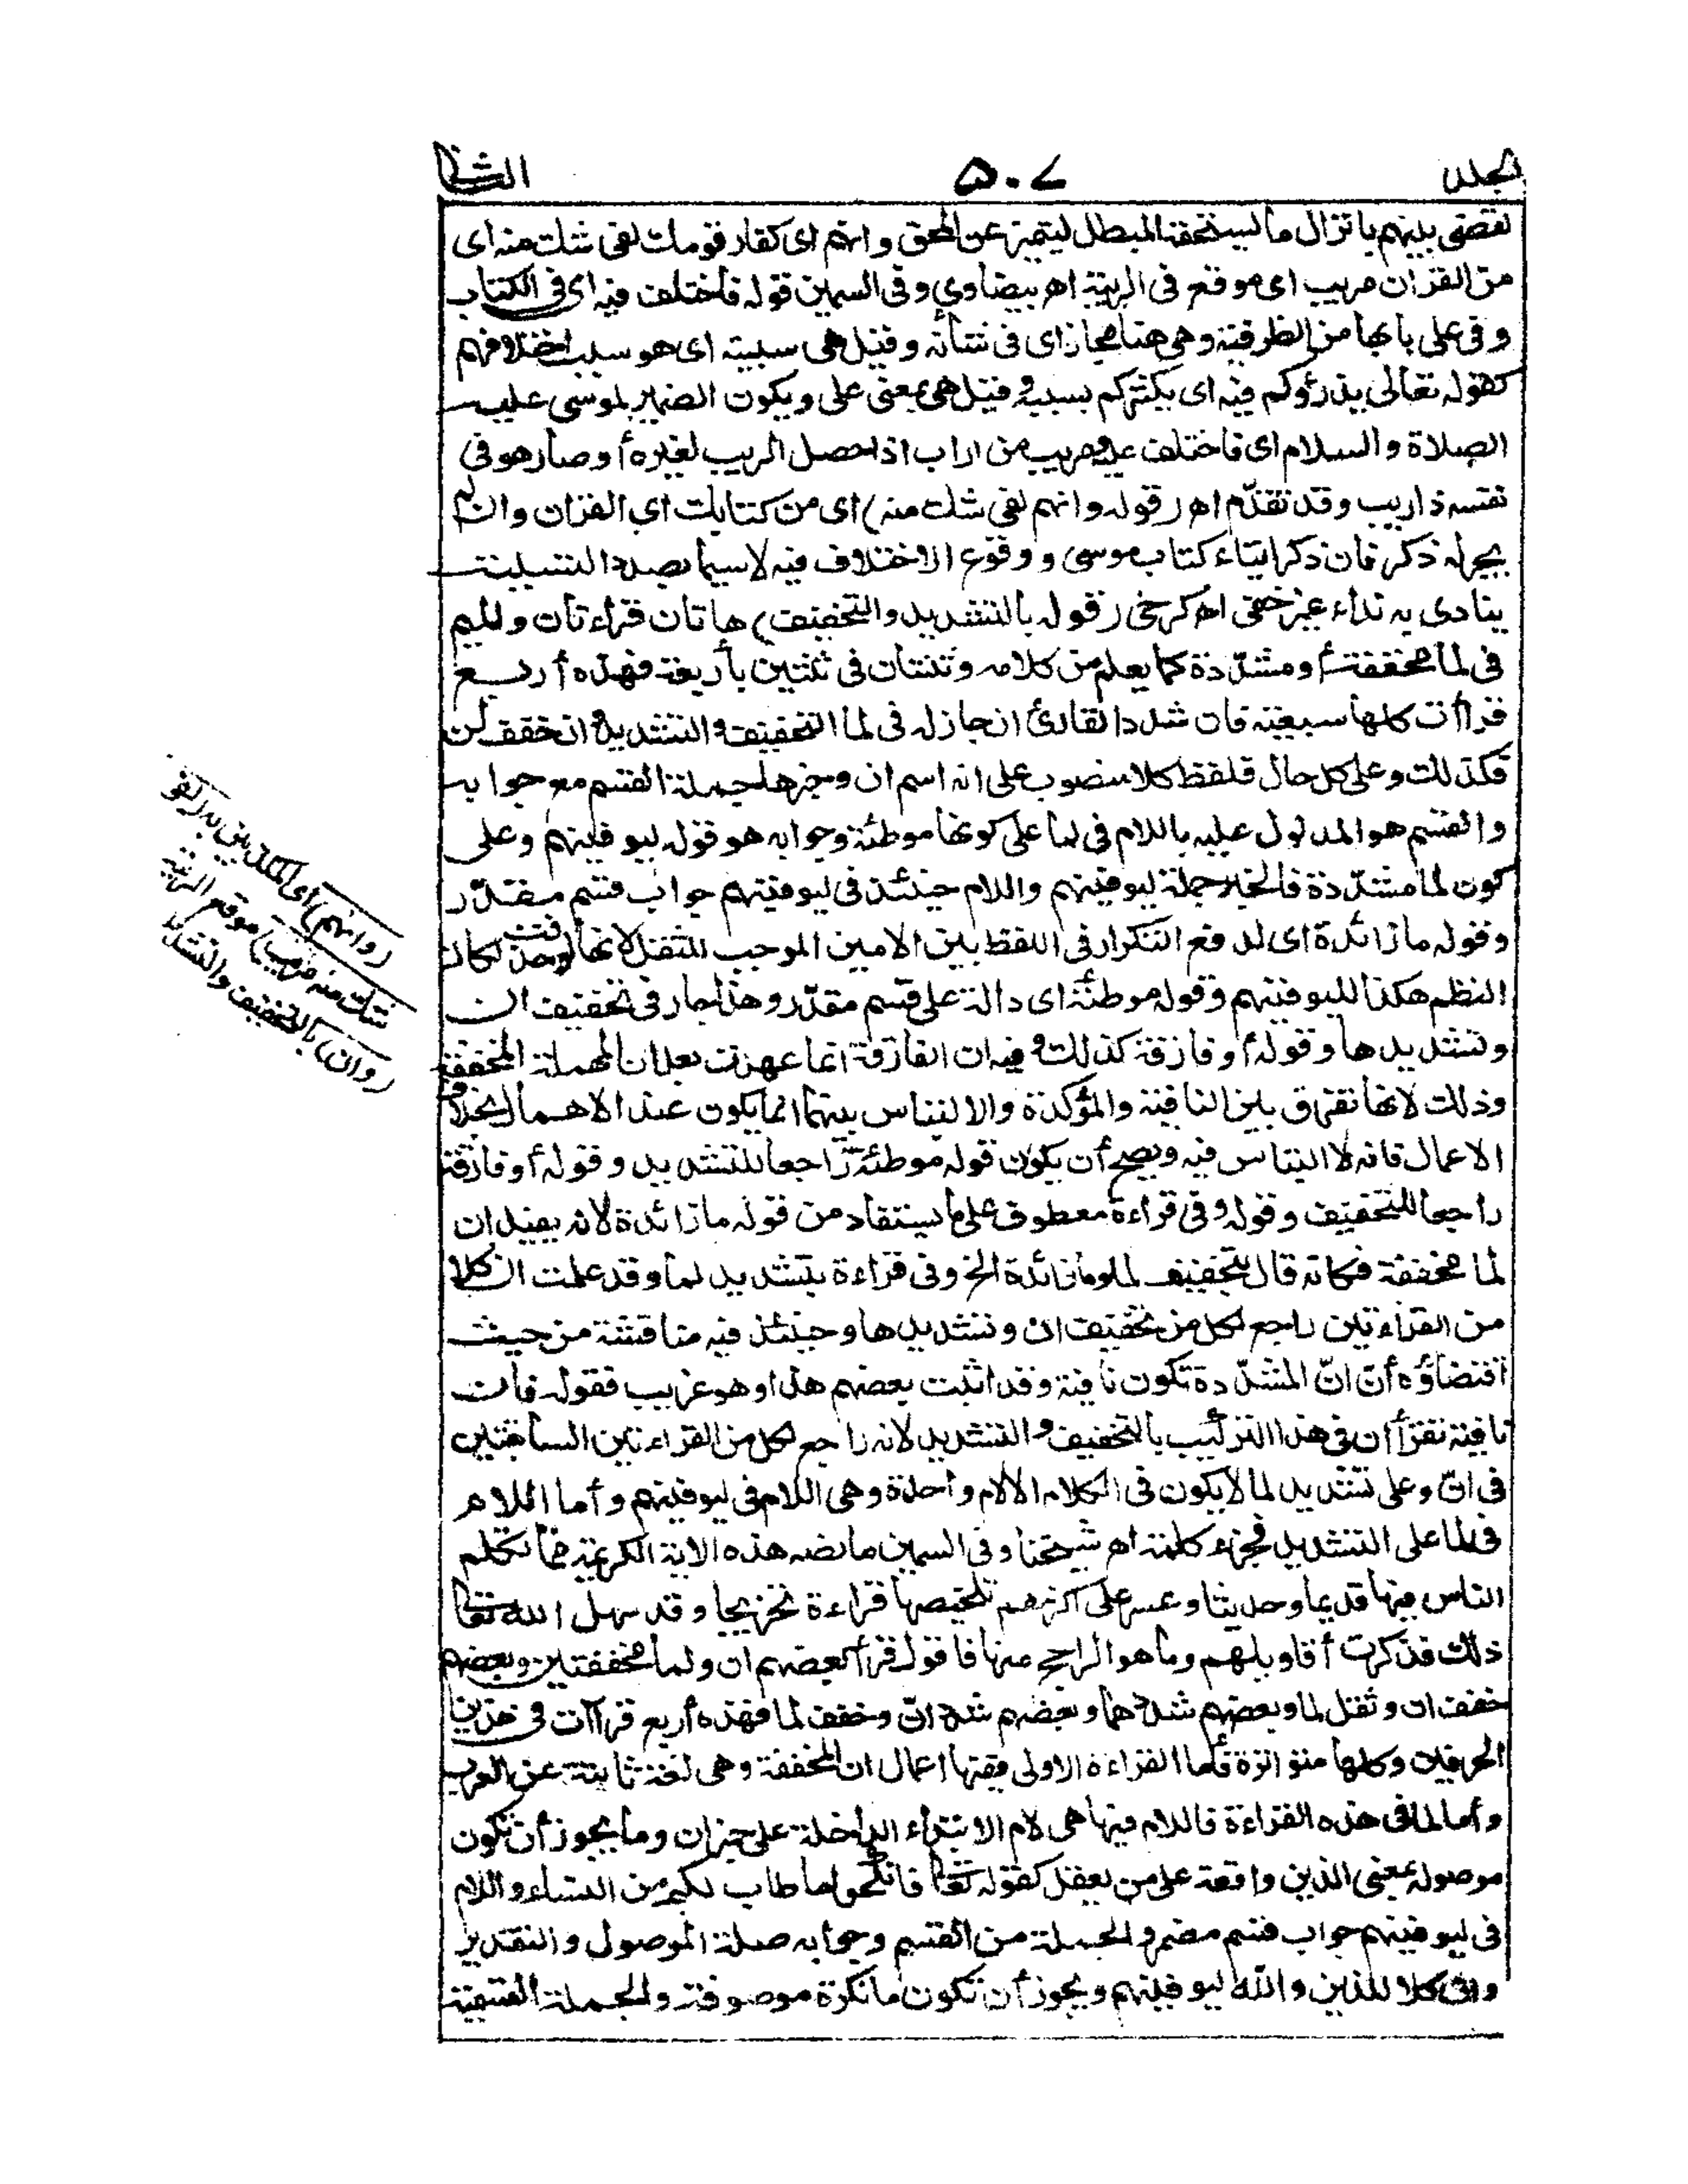 المجلد ٥٠٧ الثانی
لقضی بینهم بانزال ما یستحقه المبطل لیتمیز عن المحق وانهم ای کفار قومك لفی شك منه ای
من القران مریب ای موقع فی الریبة اهـ بیضاوی وفی السمین قوله فاختلف فیه ای فی الکتاب
وفی علی بابها من الظرفیة وهی هنا مجاز ای فی شأنه وقیل هی سببیة ای هو سبب اختلافهم
کقوله تعالی یذرؤکم فیه ای یکثرکم بسببه وقیل هی بمعنی علی ویکون الضمیر لموسی علیه
الصلاة والسلام ای فاختلف علیه ومریب من اراب اذا حصل الریب لغیره أو صار هو فی
نفسه ذاریب وقد تقدّم اهـ (قوله وانهم لفی شك منه) ای من کتابك ای القران وان لم
یجر له ذکر فان ذکر ایتاء کتاب موسی ووقوع الاختلاف فیه لاسیما بصدد التسلیة
ینادی به نداء غیر خفی اهـ کرخی (قوله بالتشدید والتخفیف) هاتان قراءتان والمیم
فی لما مخففة أو مشدّدة کما یعلم من کلامه وثنتان فی ثنتین بأربعة فهذه أربع
قراآت کلها سبعیة فان شدد القارئ ان جاز له فی لما التخفیف والتشدید وان خفف ان
فکذلك وعلی کل حال فلفظ کلا منصوب علی انه اسم ان وخبرها جملة القسم مع جوابه
والقسم هو المدلول علیه باللام فی لما علی کونها موطئة وجوابه هو قوله لیوفینهم وعلی
کون لما مشدّدة فالخبر جملة لیوفینهم واللام حینئذ فی لیوفینهم جواب قسم مقدّر
وقوله ما زائدة ای لدفع التکرار فی اللفظ بین الامین الموجب للثقل لانها لو حذفت لکان
النظم هکذا للیوفینهم وقوله موطئة ای دالة علی قسم مقدّر وهذا جار فی تخفیف ان
وتشدیدها وقوله أو فارقة کذلك وفیه ان الفارقة انما عهدت بعد ان المهملة المخففة
وذلك لانها تفرق بین النافیة والمؤکدة والالتباس بینهما انما یکون عند الاهمال بخلاف
الاعمال فانه لا التباس فیه ویصح أن یکون قوله موطئة راجعا للتشدید وقوله أو فارقة
راجعا للتخفیف وقوله وفی قراءة معطوف علی ما یستفاد من قوله ما زائدة لانه یفید ان
لما مخففة فکانه قال بتخفیف لما وما زائدة الخ وفی قراءة بتشدید لما وقد علمت ان کلا
من القراءتین راجع لکل من تخفیف ان وتشدیدها وحینئذ فیه مناقشة من حیث
اقتضاؤه أن انّ المشدّدة تکون نافیة وقد اثبت بعضهم هذا وهو غریب فقوله فان
نافیة تقرأ ان فی هذا الترکیب بالتخفیف والتشدید لانه راجع لکل من القراءتین السابقتین
فی انّ وعلی تشدید لما لا یکون فی الکلام الا لام واحدة وهی اللام فی لیوفینهم وأما اللام
فی لما علی التشدید فجزء کلمة اهـ شیخنا وفی السمین ما نصه هذه الایة الکریمة مما تکلم
الناس فیها قدیما وحدیثا وعسر علی اکثرهم تلخیصها قراءة وتخریجا وقد سهل الله تعالی
ذلك فذکرت أقاویلهم وما هو الراجح منها فاقول قرأ بعضهم ان ولما مخففتین وبعضهم
خفف ان وثقل لما وبعضهم شدّدهما وبعضهم شدد انّ وخفف لما فهذه أربع قراآت فی هذین
الحرفین وکلها متواترة فأما القراءة الاولی ففیها اعمال ان المخففة وهی لغة ثابتة عن العرب
وأما لما فی هذه القراءة فاللام فیها هی لام الابتداء الداخلة علی خبر ان وما یجوز أن تکون
موصولة بمعنی الذین واقعة علی من یعقل کقوله تعالی فانکحوا ما طاب لکم من النساء واللام
فی لیوفینهم جواب قسم مضمر والجملة من القسم وجوابه صلة الموصول والتقدیر
وان کلا للذین والله لیوفینهم ویجوز أن تکون ما نکرة موصوفة والجملة القسمیة
(وانهم) ای المکذبین به (لفی
شك منه مریب) موقع الریبة
(وان) بالتخفیف والتشدید